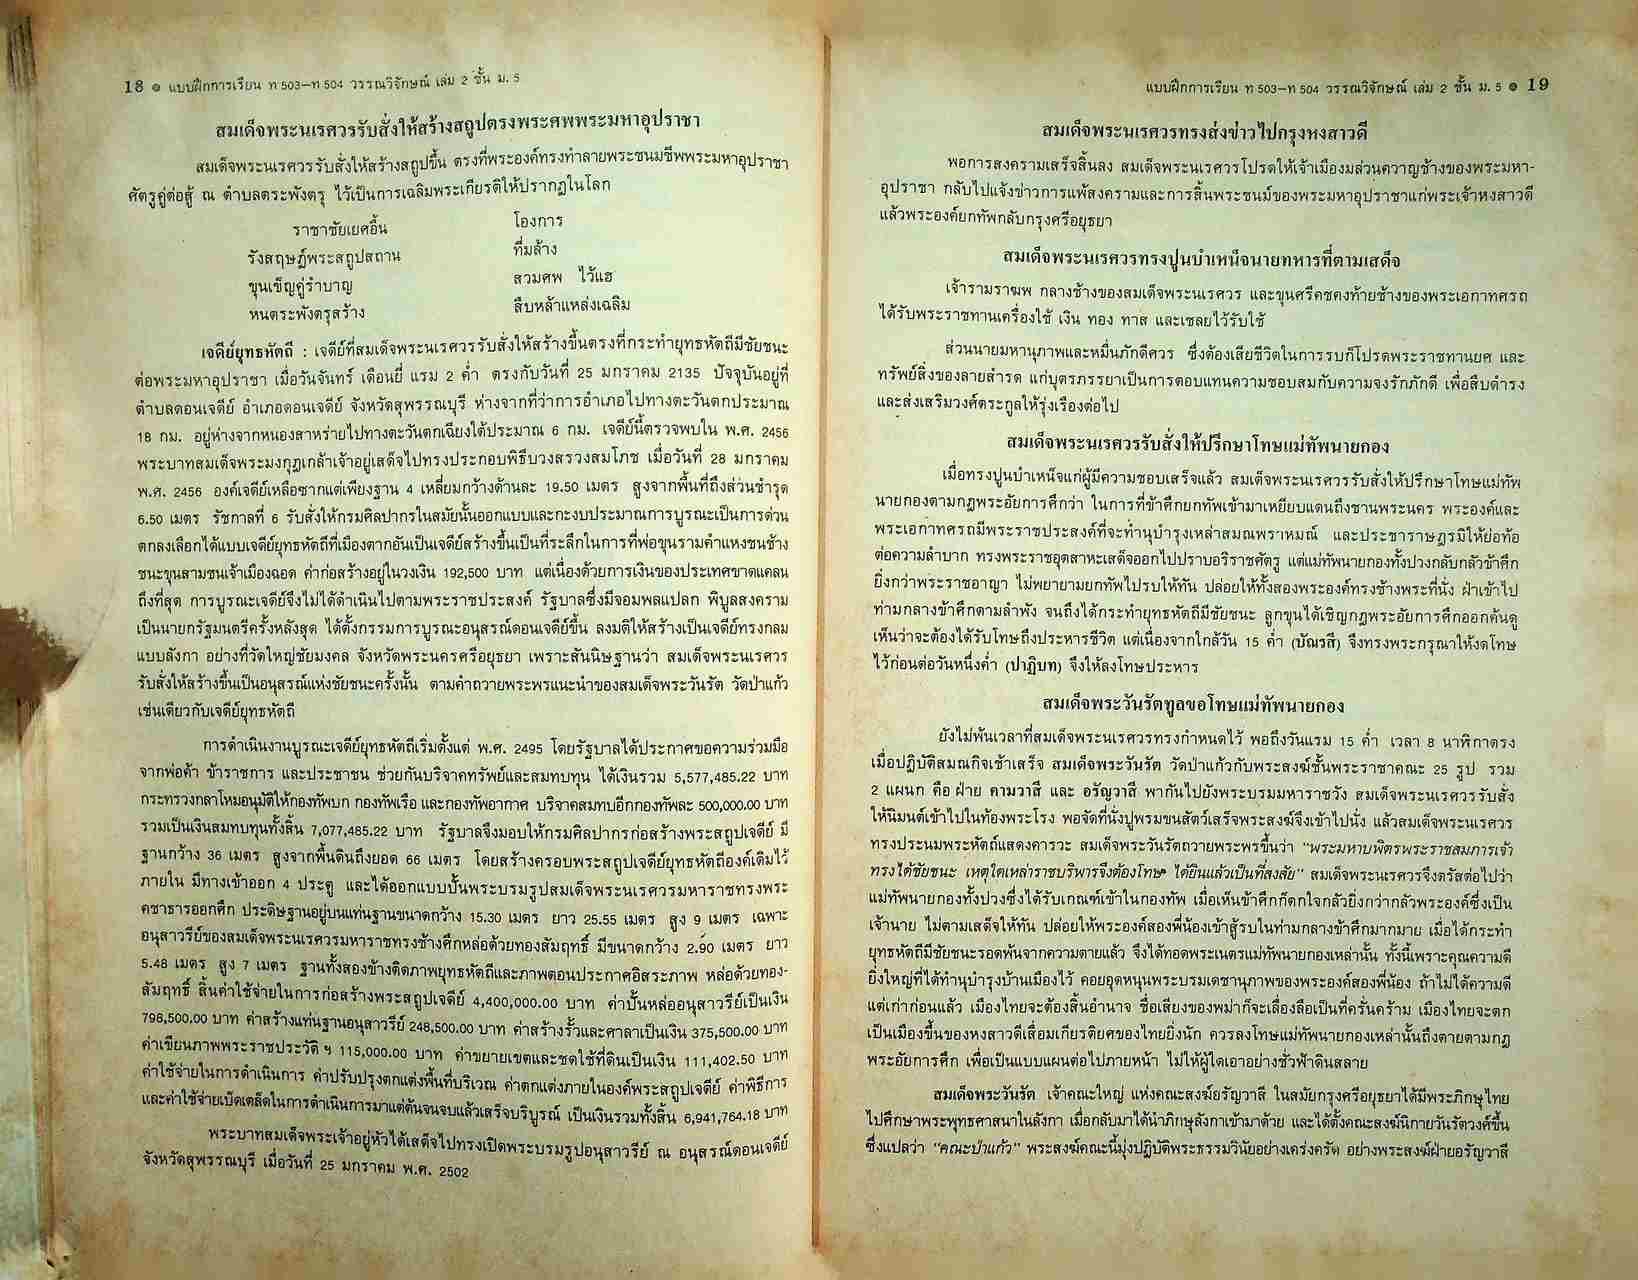 18 ๏ แบบฝึกการเรียน ท 503–ท 504 วรรณวิจักษณ์ เล่ม 2 ชั้น ม. 5
สมเด็จพระนเรศวรรับสั่งให้สร้างสถูปตรงพระศพพระมหาอุปราชา
สมเด็จพระนเรศวรรับสั่งให้สร้างสถูปขึ้น ตรงที่พระองค์ทรงทำลายพระชนมชีพพระมหาอุปราชา
ศัตรูคู่ต่อสู้ ณ ตำบลตระพังตรุ ไว้เป็นการเฉลิมพระเกียรติให้ปรากฏในโลก
ราชาชัยเยศอื้น โองการ
รังสฤษฎ์พระสถูปสถาน ที่มล้าง
ขุนเข็ญคู่รำบาญ สวมศพ ไว้แฮ
หนตระพังตรุสร้าง สืบหล้าแหล่งเฉลิม
เจดีย์ยุทธหัตถี : เจดีย์ที่สมเด็จพระนเรศวรรับสั่งให้สร้างขึ้นตรงที่กระทำยุทธหัตถีมีชัยชนะ
ต่อพระมหาอุปราชา เมื่อวันจันทร์ เดือนยี่ แรม 2 ค่ำ ตรงกับวันที่ 25 มกราคม 2135 ปัจจุบันอยู่ที่
ตำบลดอนเจดีย์ อำเภอดอนเจดีย์ จังหวัดสุพรรณบุรี ห่างจากที่ว่าการอำเภอไปทางตะวันตกประมาณ
18 กม. อยู่ห่างจากหนองสาหร่ายไปทางตะวันตกเฉียงใต้ประมาณ 6 กม. เจดีย์นี้ตรวจพบใน พ.ศ. 2456
พระบาทสมเด็จพระมงกุฎเกล้าเจ้าอยู่เสด็จไปทรงประกอบพิธีบวงสรวงสมโภช เมื่อวันที่ 28 มกราคม
พ.ศ. 2456 องค์เจดีย์เหลือซากแต่เพียงฐาน 4 เหลี่ยมกว้างด้านละ 19.50 เมตร สูงจากพื้นที่ถึงส่วนชำรุด
6.50 เมตร รัชกาลที่ 6 รับสั่งให้กรมศิลปากรในสมัยนั้นออกแบบและกะงบประมาณการบูรณะเป็นการด่วน
ตกลงเลือกได้แบบเจดีย์ยุทธหัตถีที่เมืองตากอันเป็นเจดีย์สร้างขึ้นเป็นที่ระลึกในการที่พ่อขุนรามคำแหงชนช้าง
ชนะขุนสามชนเจ้าเมืองฉอด ค่าก่อสร้างอยู่ในวงเงิน 192,500 บาท แต่เนื่องด้วยการเงินของประเทศขาดแคลน
ถึงที่สุด การบูรณะเจดีย์จึงไม่ได้ดำเนินไปตามพระราชประสงค์ รัฐบาลซึ่งมีจอมพลแปลก พิบูลสงคราม
เป็นนายกรัฐมนตรีครั้งหลังสุด ได้ตั้งกรรมการบูรณะอนุสรณ์ดอนเจดีย์ขึ้น ลงมติให้สร้างเป็นเจดีย์ทรงกลม
แบบลังกา อย่างที่วัดใหญ่ชัยมงคล จังหวัดพระนครศรีอยุธยา เพราะสันนิษฐานว่า สมเด็จพระนเรศวร
รับสั่งให้สร้างขึ้นเป็นอนุสรณ์แห่งชัยชนะครั้งนั้น ตามคำถวายพระพรแนะนำของสมเด็จพระวันรัต วัดป่าแก้ว
เช่นเดียวกับเจดีย์ยุทธหัตถี
การดำเนินงานบูรณะเจดีย์ยุทธหัตถีเริ่มตั้งแต่ พ.ศ. 2495 โดยรัฐบาลได้ประกาศขอความร่วมมือ
จากพ่อค้า ข้าราชการ และประชาชน ช่วยกันบริจาคทรัพย์และสมทบทุน ได้เงินรวม 5,577,485.22 บาท
กระทรวงกลาโหมอนุมัติให้กองทัพบก กองทัพเรือ และกองทัพอากาศ บริจาคสมทบอีกกองทัพละ 500,000.00 บาท
รวมเป็นเงินสมทบทุนทั้งสิ้น 7,077,485.22 บาท รัฐบาลจึงมอบให้กรมศิลปากรก่อสร้างพระสถูปเจดีย์ มี
ฐานกว้าง 36 เมตร สูงจากพื้นดินถึงยอด 66 เมตร โดยสร้างครอบพระสถูปเจดีย์ยุทธหัตถีองค์เดิมไว้
ภายใน มีทางเข้าออก 4 ประตู และได้ออกแบบปั้นพระบรมรูปสมเด็จพระนเรศวรมหาราชทรงพระ
คชาธารออกศึก ประดิษฐานอยู่บนแท่นฐานขนาดกว้าง 15.30 เมตร ยาว 25.55 เมตร สูง 9 เมตร เฉพาะ
อนุสาวรีย์ของสมเด็จพระนเรศวรมหาราชทรงช้างศึกหล่อด้วยทองสัมฤทธิ์ มีขนาดกว้าง 2.90 เมตร ยาว
5.48 เมตร สูง 7 เมตร ฐานทั้งสองข้างติดภาพยุทธหัตถีและภาพตอนประกาศอิสระภาพ หล่อด้วยทอง-
สัมฤทธิ์ สิ้นค่าใช้จ่ายในการก่อสร้างพระสถูปเจดีย์ 4,400,000.00 บาท ค่าปั้นหล่ออนุสาวรีย์เป็นเงิน
798,500.00 บาท ค่าสร้างแท่นฐานอนุสาวรีย์ 248,500.00 บาท ค่าสร้างรั้วและศาลาเป็นเงิน 375,500.00 บาท
ค่าเขียนภาพพระราชประวัติ ฯ 115,000.00 บาท ค่าขยายเขตและชดใช้ที่ดินเป็นเงิน 111,402.50 บาท
ค่าใช้จ่ายในการดำเนินการ ค่าปรับปรุงตกแต่งพื้นที่บริเวณ ค่าตกแต่งภายในองค์พระสถูปเจดีย์ ค่าพิธีการ
และค่าใช้จ่ายเบ็ดเตล็ดในการดำเนินการมาแต่ต้นจนจบแล้วเสร็จบริบูรณ์ เป็นเงินรวมทั้งสิ้น 6,941,764.18 บาท
พระบาทสมเด็จพระเจ้าอยู่หัวได้เสด็จไปทรงเปิดพระบรมรูปอนุสาวรีย์ ณ อนุสรณ์ดอนเจดีย์
จังหวัดสุพรรณบุรี เมื่อวันที่ 25 มกราคม พ.ศ. 2502
แบบฝึกการเรียน ท 503–ท 504 วรรณวิจักษณ์ เล่ม 2 ชั้น ม. 5 ๏ 19
สมเด็จพระนเรศวรทรงส่งข่าวไปกรุงหงสาวดี
พอการสงครามเสร็จสิ้นลง สมเด็จพระนเรศวรโปรดให้เจ้าเมืองมล่วนควาญช้างของพระมหา-
อุปราชา กลับไปแจ้งข่าวการแพ้สงครามและการสิ้นพระชนม์ของพระมหาอุปราชาแก่พระเจ้าหงสาวดี
แล้วพระองค์ยกทัพกลับกรุงศรีอยุธยา
สมเด็จพระนเรศวรทรงปูนบำเหน็จนายทหารที่ตามเสด็จ
เจ้ารามราฆพ กลางช้างของสมเด็จพระนเรศวร และขุนศรีคชคงท้ายช้างของพระเอกาทศรถ
ได้รับพระราชทานเครื่องใช้ เงิน ทอง ทาส และเชลยไว้รับใช้
ส่วนนายมหานุภาพและหมื่นภักดีศวร ซึ่งต้องเสียชีวิตในการรบก็โปรดพระราชทานยศ และ
ทรัพย์สิ่งของลายสำรด แก่บุตรภรรยาเป็นการตอบแทนความชอบสมกับความจงรักภักดี เพื่อสืบดำรง
และส่งเสริมวงศ์ตระกูลให้รุ่งเรืองต่อไป
สมเด็จพระนเรศวรรับสั่งให้ปรึกษาโทษแม่ทัพนายกอง
เมื่อทรงปูนบำเหน็จแก่ผู้มีความชอบเสร็จแล้ว สมเด็จพระนเรศวรรับสั่งให้ปรึกษาโทษแม่ทัพ
นายกองตามกฎพระอัยการศึกว่า ในการที่ข้าศึกยกทัพเข้ามาเหยียบแดนถึงชานพระนคร พระองค์และ
พระเอกาทศรถมีพระราชประสงค์ที่จะทำนุบำรุงเหล่าสมณพราหมณ์ และประชาราษฎรมิให้ย่อท้อ
ต่อความลำบาก ทรงพระราชอุตสาหะเสด็จออกไปปราบอริราชศัตรู แต่แม่ทัพนายกองทั้งปวงกลับกลัวข้าศึก
ยิ่งกว่าพระราชอาญา ไม่พยายามยกทัพไปรบให้ทัน ปล่อยให้ทั้งสองพระองค์ทรงช้างพระที่นั่ง ฝ่าเข้าไป
ท่ามกลางข้าศึกตามลำพัง จนถึงได้กระทำยุทธหัตถีมีชัยชนะ ลูกขุนได้เชิญกฎพระอัยการศึกออกค้นดู
เห็นว่าจะต้องได้รับโทษถึงประหารชีวิต แต่เนื่องจากใกล้วัน 15 ค่ำ (บัณรสี) จึงทรงพระกรุณาให้งดโทษ
ไว้ก่อนต่อวันหนึ่งค่ำ (ปาฏิบท) จึงให้ลงโทษประหาร
สมเด็จพระวันรัตทูลขอโทษแม่ทัพนายกอง
ยังไม่พ้นเวลาที่สมเด็จพระนเรศวรทรงกำหนดไว้ พอถึงวันแรม 15 ค่ำ เวลา 8 นาฬิกาตรง
เมื่อปฏิบัติสมณกิจเช้าเสร็จ สมเด็จพระวันรัต วัดป่าแก้วกับพระสงฆ์ชั้นพระราชาคณะ 25 รูป รวม
2 แผนก คือ ฝ่าย คามวาสี และ อรัญวาสี พากันไปยังพระบรมมหาราชวัง สมเด็จพระนเรศวรรับสั่ง
ให้นิมนต์เข้าไปในท้องพระโรง พอจัดที่นั่งปูพรมขนสัตว์เสร็จพระสงฆ์จึงเข้าไปนั่ง แล้วสมเด็จพระนเรศวร
ทรงประนมพระหัตถ์แสดงคารวะ สมเด็จพระวันรัตถวายพระพรขึ้นว่า "พระมหาบพิตรพระราชสมภารเจ้า
ทรงได้ชัยชนะ เหตุใดเหล่าราชบริพารจึงต้องโทษ ได้ยินแล้วเป็นที่สงสัย" สมเด็จพระนเรศวรจึงตรัสต่อไปว่า
แม่ทัพนายกองทั้งปวงซึ่งได้รับเกณฑ์เข้าในกองทัพ เมื่อเห็นข้าศึกก็ตกใจกลัวยิ่งกว่ากลัวพระองค์ซึ่งเป็น
เจ้านาย ไม่ตามเสด็จให้ทัน ปล่อยให้พระองค์สองพี่น้องเข้าสู้รบในท่ามกลางข้าศึกมากมาย เมื่อได้กระทำ
ยุทธหัตถีมีชัยชนะรอดพ้นจากความตายแล้ว จึงได้ทอดพระเนตรแม่ทัพนายกองเหล่านั้น ทั้งนี้เพราะคุณความดี
ยิ่งใหญ่ที่ได้ทำนุบำรุงบ้านเมืองไว้ คอยอุดหนุนพระบรมเดชานุภาพของพระองค์สองพี่น้อง ถ้าไม่ได้ความดี
แต่เก่าก่อนแล้ว เมืองไทยจะต้องสิ้นอำนาจ ชื่อเสียงของพม่าก็จะเลื่องลือเป็นที่ครั่นคร้าม เมืองไทยจะตก
เป็นเมืองขึ้นของหงสาวดีเสื่อมเกียรติยศของไทยยิ่งนัก ควรลงโทษแม่ทัพนายกองเหล่านั้นถึงตายตามกฎ
พระอัยการศึก เพื่อเป็นแบบแผนต่อไปภายหน้า ไม่ให้ผู้ใดเอาอย่างชั่วฟ้าดินสลาย
สมเด็จพระวันรัต เจ้าคณะใหญ่ แห่งคณะสงฆ์อรัญวาสี ในสมัยกรุงศรีอยุธยาได้มีพระภิกษุไทย
ไปศึกษาพระพุทธศาสนาในลังกา เมื่อกลับมาได้นำภิกษุลังกาเข้ามาด้วย และได้ตั้งคณะสงฆ์นิกายวันรัตวงศ์ขึ้น
ซึ่งแปลว่า "คณะป่าแก้ว" พระสงฆ์คณะนี้มุ่งปฏิบัติพระธรรมวินัยอย่างเคร่งครัด อย่างพระสงฆ์ฝ่ายอรัญวาสี